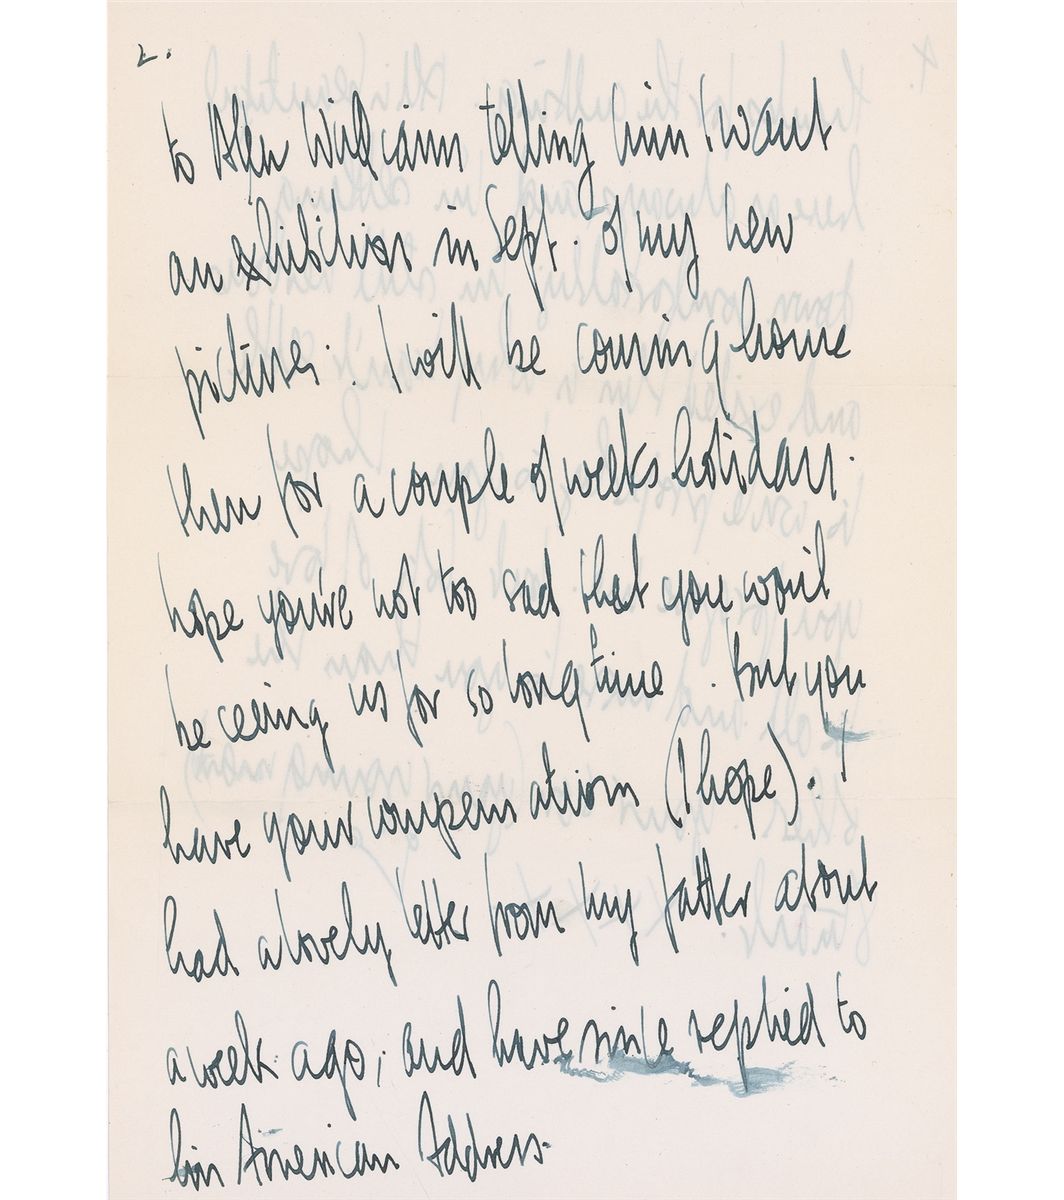 2.
to Alex Williams telling him I want
an exhibition in Sept. of my new
pictures. I will be coming home
then for a couple of weeks holiday.
hope you're not too sad that you won't
be ceeing us for so long time. But you
have your compensations (I hope). I
had a lovely letter from my father about
a week ago, and have since replied to
his American Address.